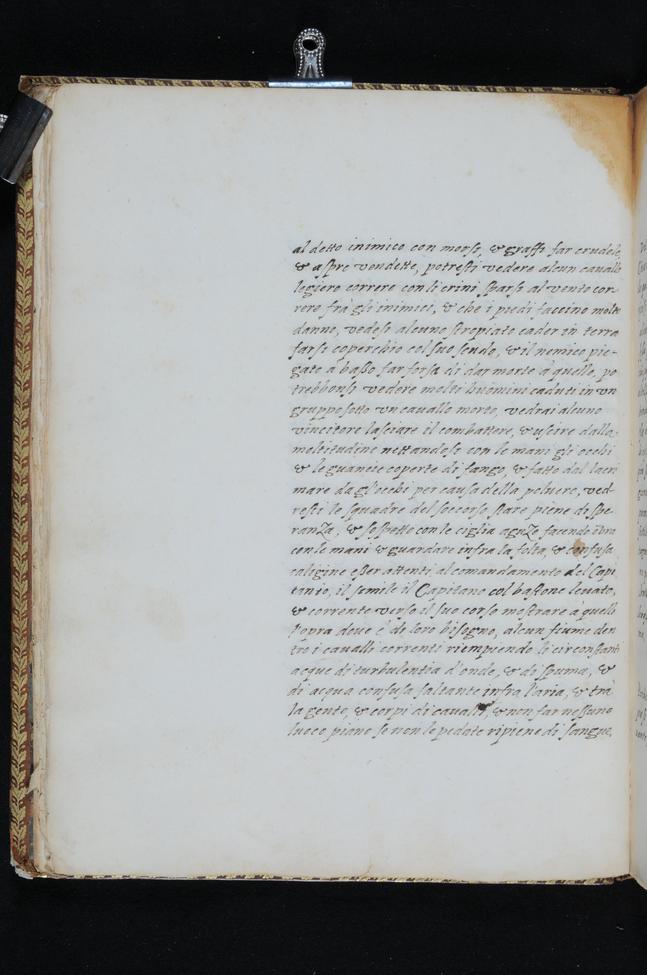 al detto inimico con morsi, & graffi far crudele,
& aspre vendette, potresti vedere alcun cavallo
legiere correre con li crini sparsi al vento cor-
rere frà gli inimici, & che i piedi faccino molto
danno, vedesi alcuno stropiato cader in terra
farsi coperchio col suo scudo, & il nemico pie-
gato à basso far forsa di dar morte à quello, po
trebbonsi vedere molti huomini caduti in un
gruppo sotto un cavallo morto, vedrai alcuno
vincitore lasciare il combattere, & uscire dalla
moltitudine nettandosi con le mani gli occhi
& le guancie coperte di fango, & fatto dal lacri
mare da gl'occhi per causa della polvere, ved-
resti le squadre del soccorso stare piene di spe-
ranza, & sospetto con le ciglia aguze facendo õbra
con le mani & guardare infra la folta, & confusa
caligine esser attenti al comandamento del Capi
tanio, il simile il Capitano col bastone levato,
& corrente verso il suo corso mostrare à quelli
l'opra dove è de loro bisogno, alcun fiume den
tro i cavalli correnti riempiendo li circonstanti
acque di turbulentia d'onde, & di spuma, &
di acqua confusa saltante infra l'aria, & trà
la gente, & corpi di cavalli, & non far nessuno
luoco piano se non le pedate ripiene di sangue,